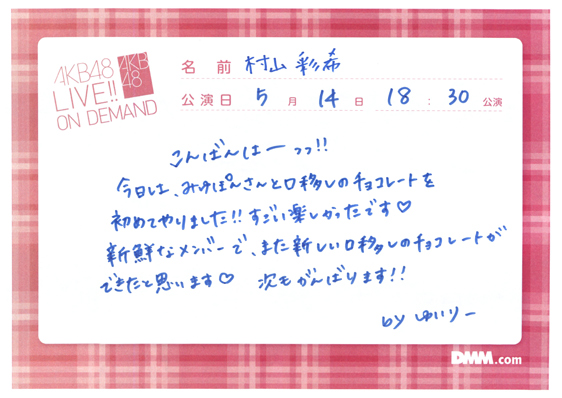 AKB48
LIVE!!
ON DEMAND
AKB
48
名前 村山彩希
公演日 5月14日 18:30公演
こんばんはーっっ!!
今日は、みゆぽんさんと口移しのチョコレートを
初めてやりました!!すごい楽しかったです♡
新鮮なメンバーで、また新しい口移しのチョコレートが
できたと思います♡ 次もがんばります!!
by ゆいりー
DMM.com